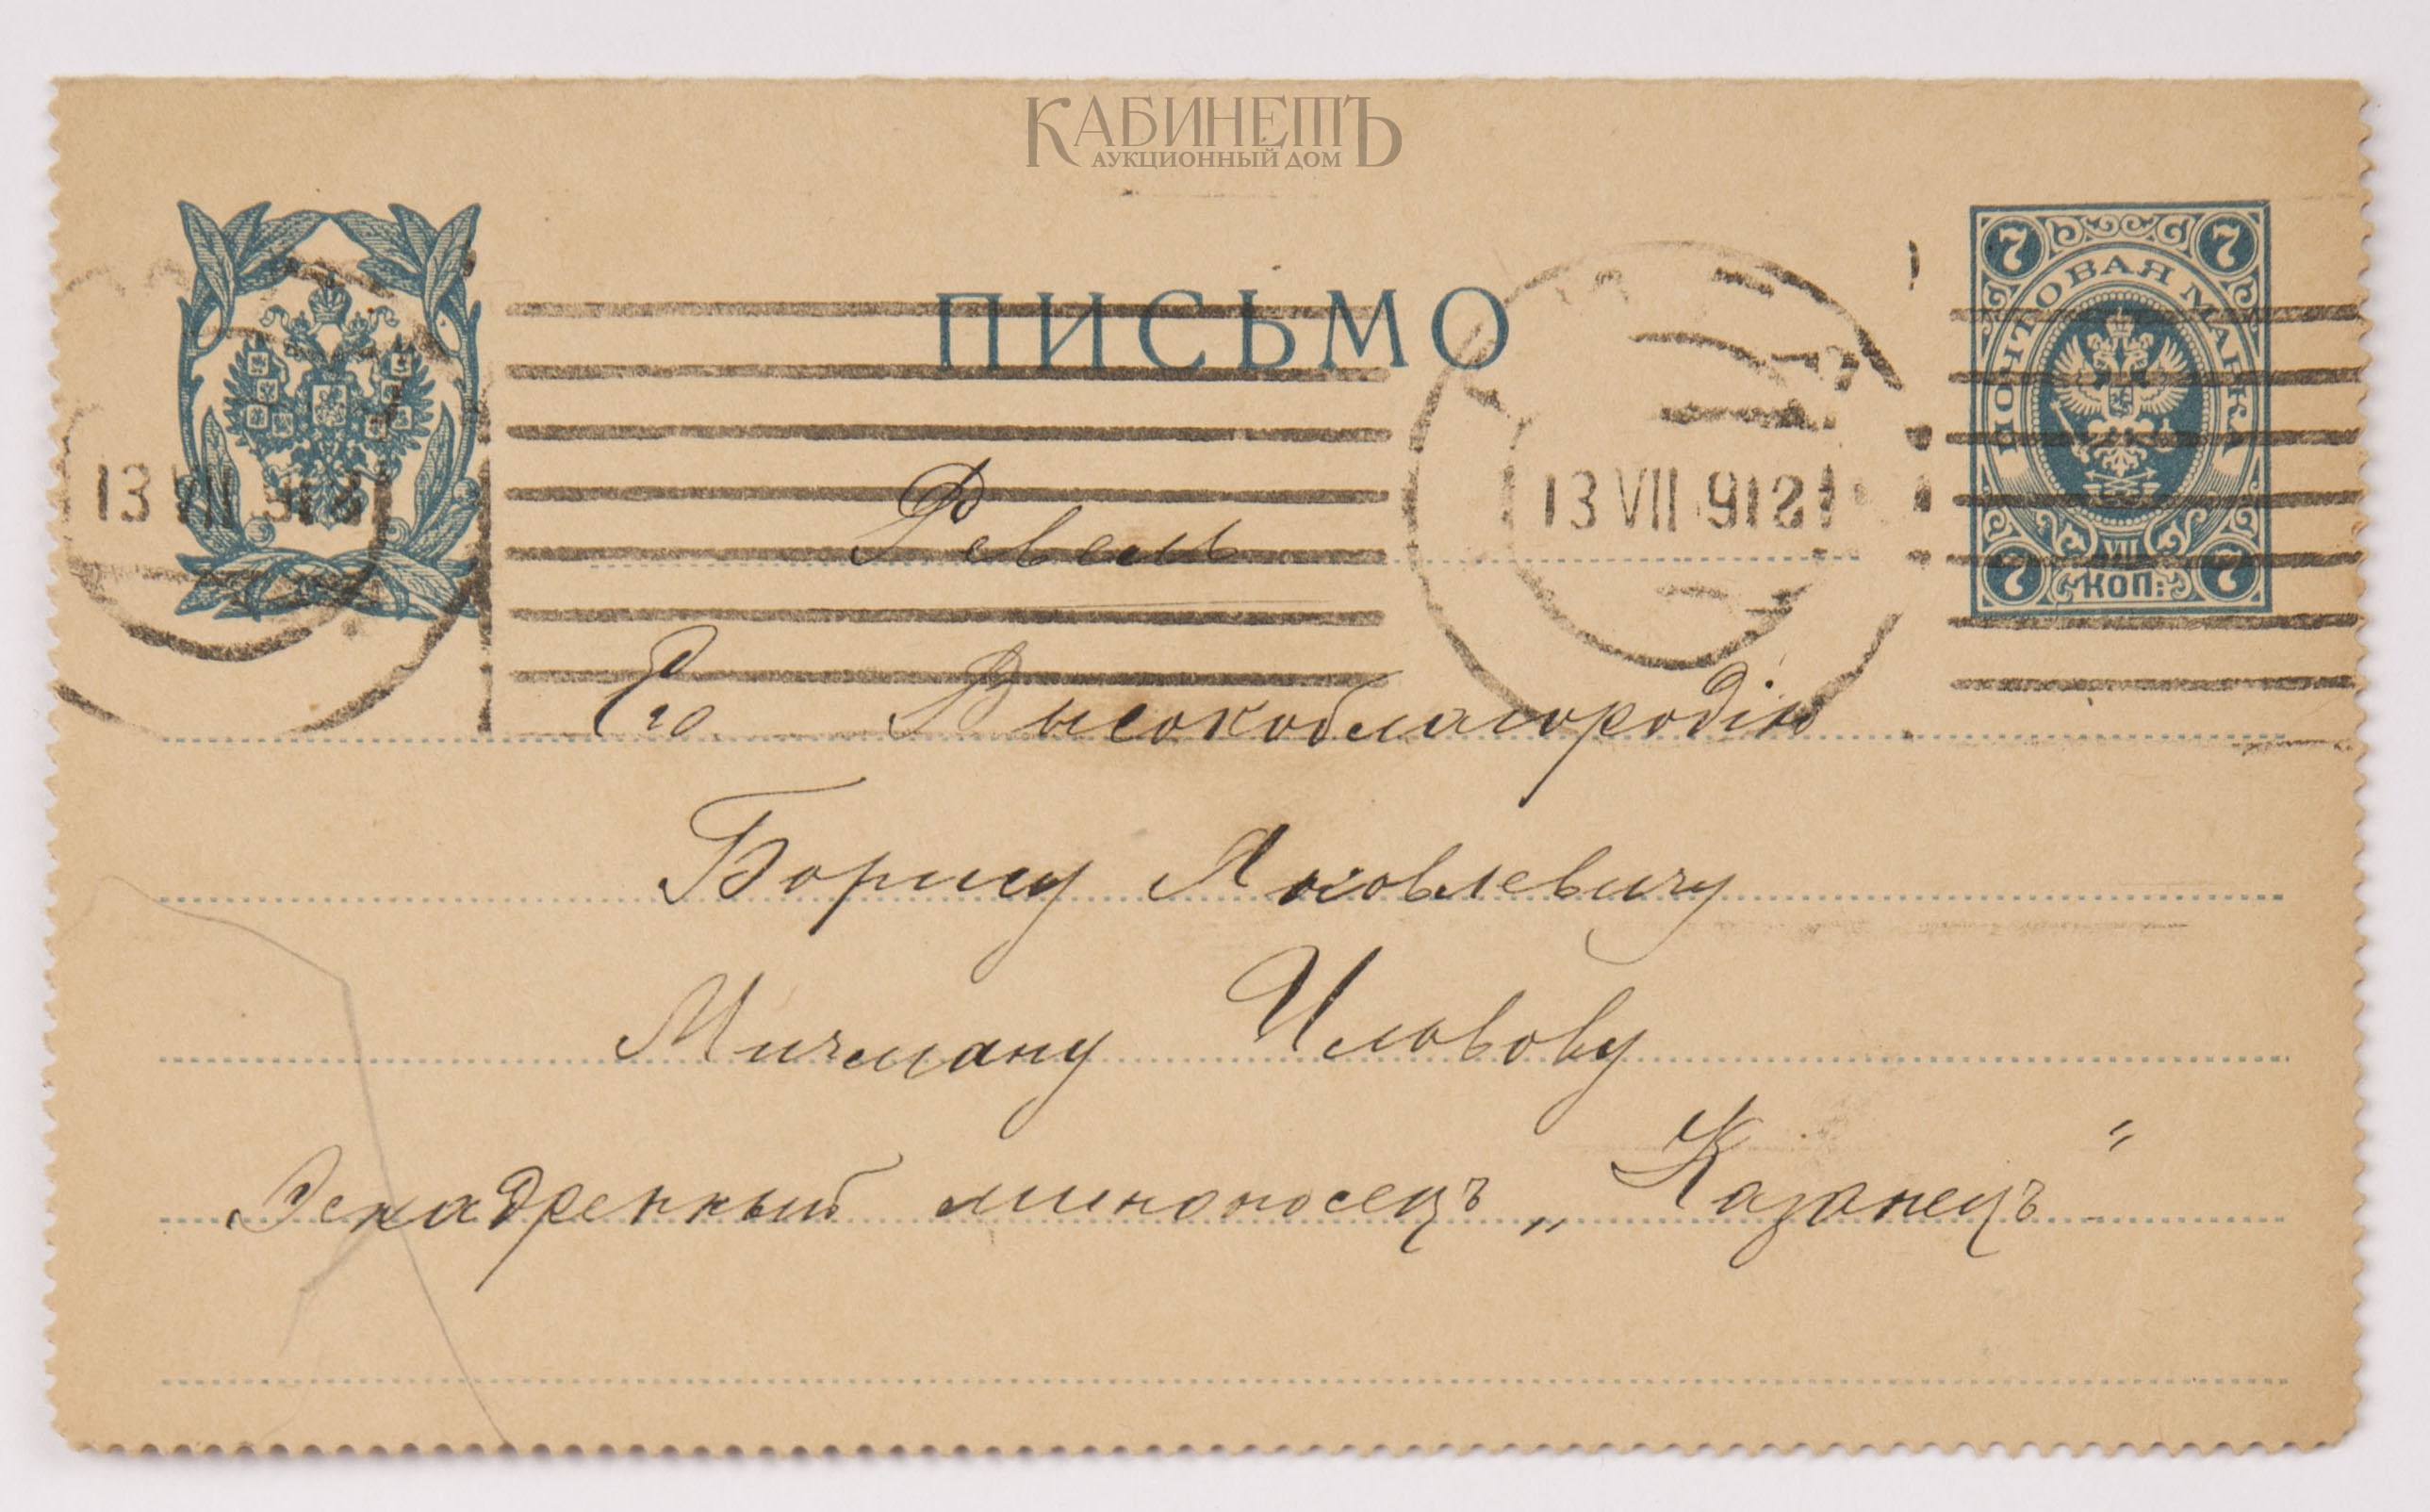 КАБИНЕТЪ
АУКЦИОННЫЙ ДОМ
7 7
ПОЧТОВАЯ МАРКА
ПИСЬМО
13 VII 912
13 VII 912
VII
7 КОП. 7
Ревель
Его Высокоблагородію
Борису Яковлевичу
Мичману
Эскадренный миноносецъ „Казанецъ“